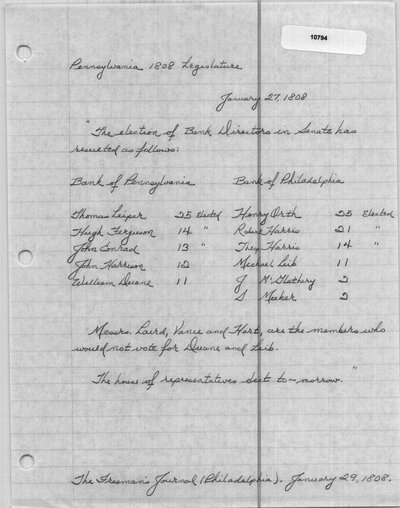 10794
Pennsylvania 1808 Legislature
January 27, 1808
"The election of Bank Directors in Senate has
resulted as follows:
Bank of Pennsylvania Bank of Philadelphia
Thomas Leiper 25 elected Henry Orth 25 elected
Hugh Ferguson 14 " Robt Harris 21 "
John Conrad 13 " Thos Harris 14 "
John Harrison 12 Michael Leib 11
William Duane 11 J McGlathery 2
S Meeker 2
Messrs. Laird, Vance and Hart, are the members who
would not vote for Duane and Leib.
The house of representatives elect to-morrow."
The Freeman's Journal (Philadelphia). January 29, 1808.